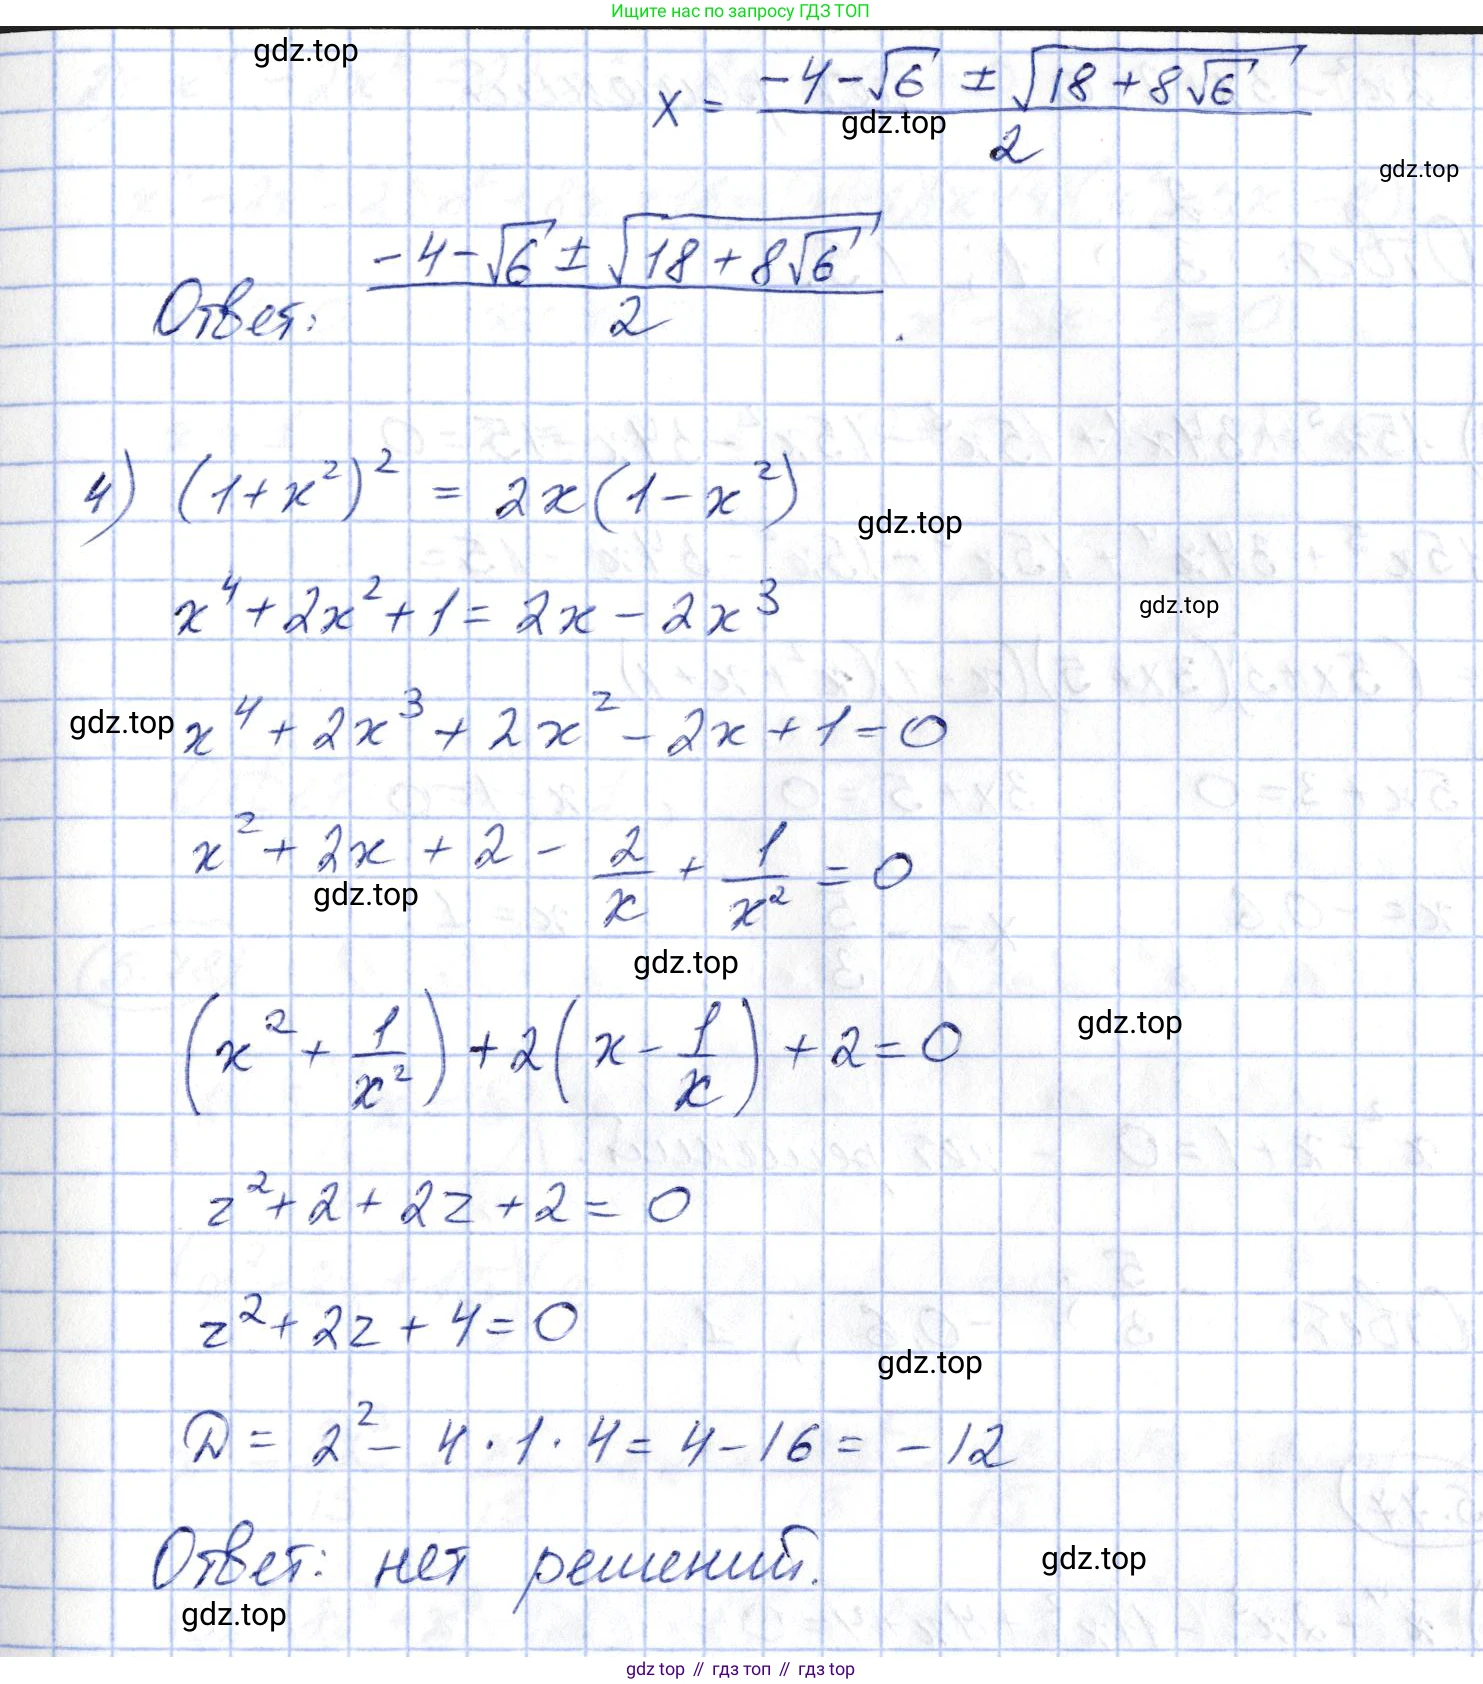 Ищите нас по запросу ГДЗ ТОП
gdz.top
x = (-4-√6 ± √(18+8√6))/2
gdz.top
gdz.top
Ответ: (-4-√6 ± √(18+8√6))/2.
4) (1+x²)² = 2x(1-x²)
gdz.top
x⁴+2x²+1=2x-2x³
gdz.top
gdz.top
x⁴+2x³+2x²-2x+1=0
x²+2x+2-2/x+1/x²=0
gdz.top
gdz.top
(x²+1/x²)+2(x-1/x)+2=0
gdz.top
z²+2+2z+2=0
z²+2z+4=0
gdz.top
D=2²-4·1·4=4-16=-12
Ответ: нет решений.
gdz.top
gdz.top
gdz top // гдз топ // gdz top